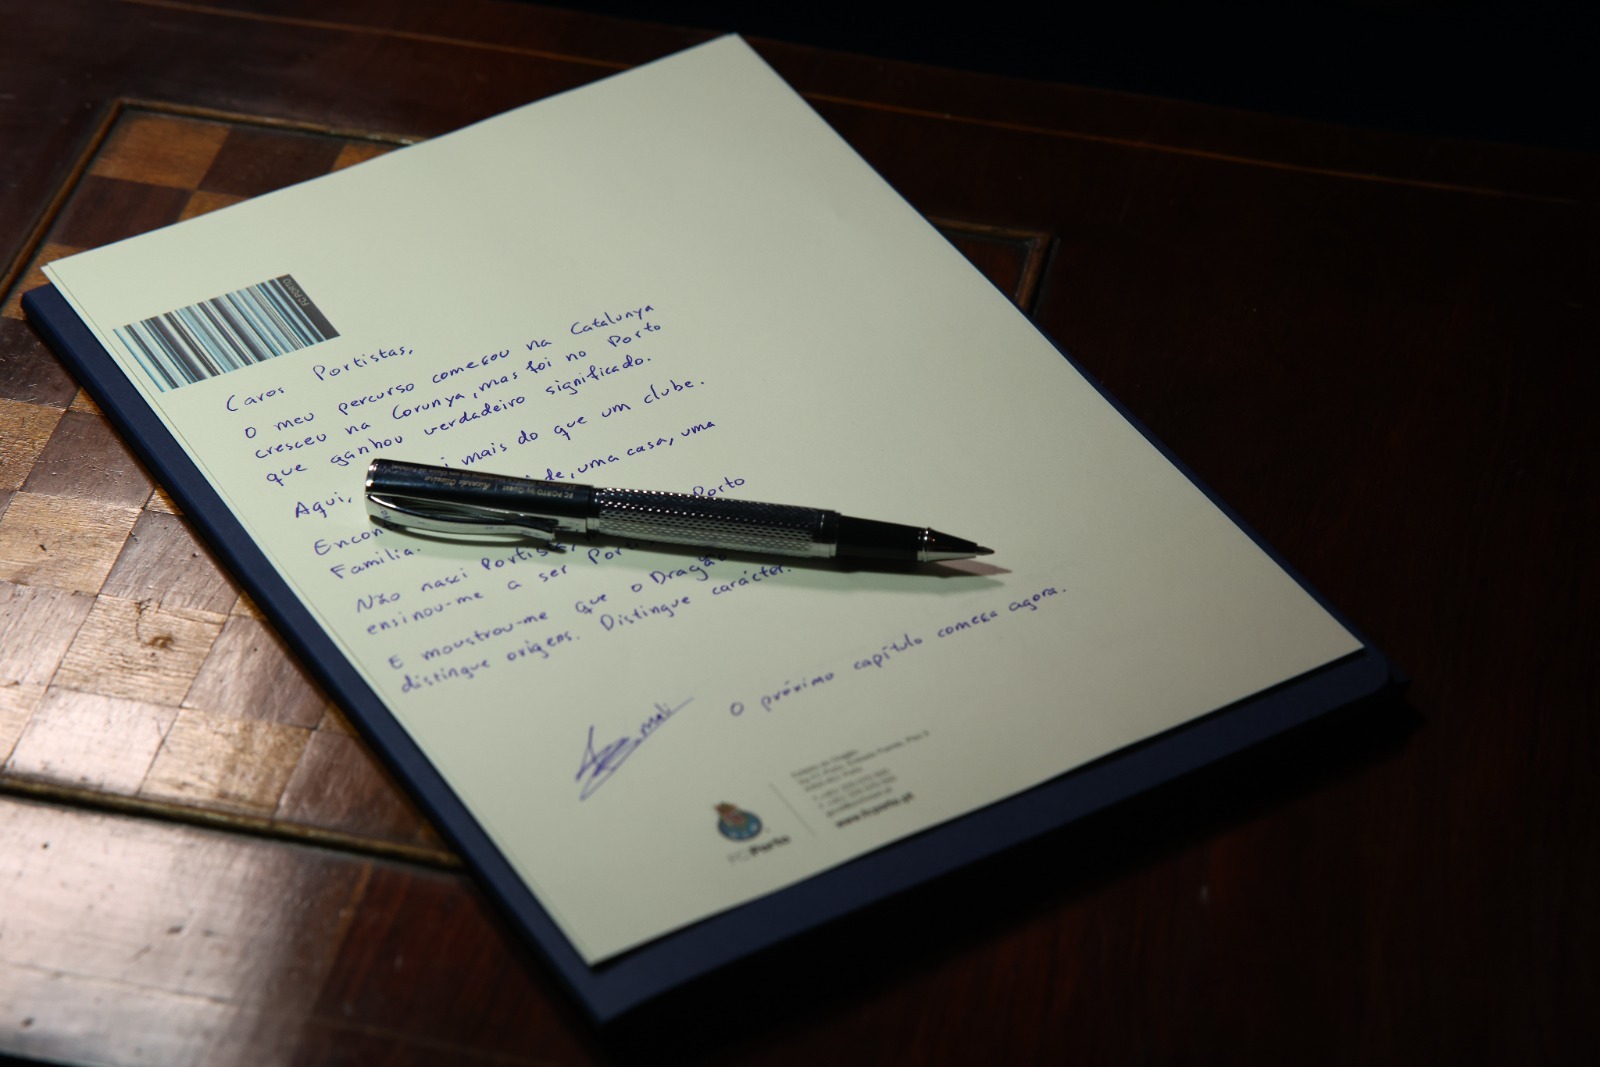 FC PORTO
Caros Portistas,
O meu percurso começou na Catalunya
cresceu na Corunya, mas foi no Porto
que ganhou verdadeiro significado.
Aqui, mais do que um clube.
uma casa, uma
Porto
Familia.
Não nasci Portista,
ensinou-me a ser
E moustrou-me que o Dragão
distingue origens. Distingue carácter.
O próximo capítulo começa agora.
FC PORTO by Quest
FC Porto
www.fcporto.pt